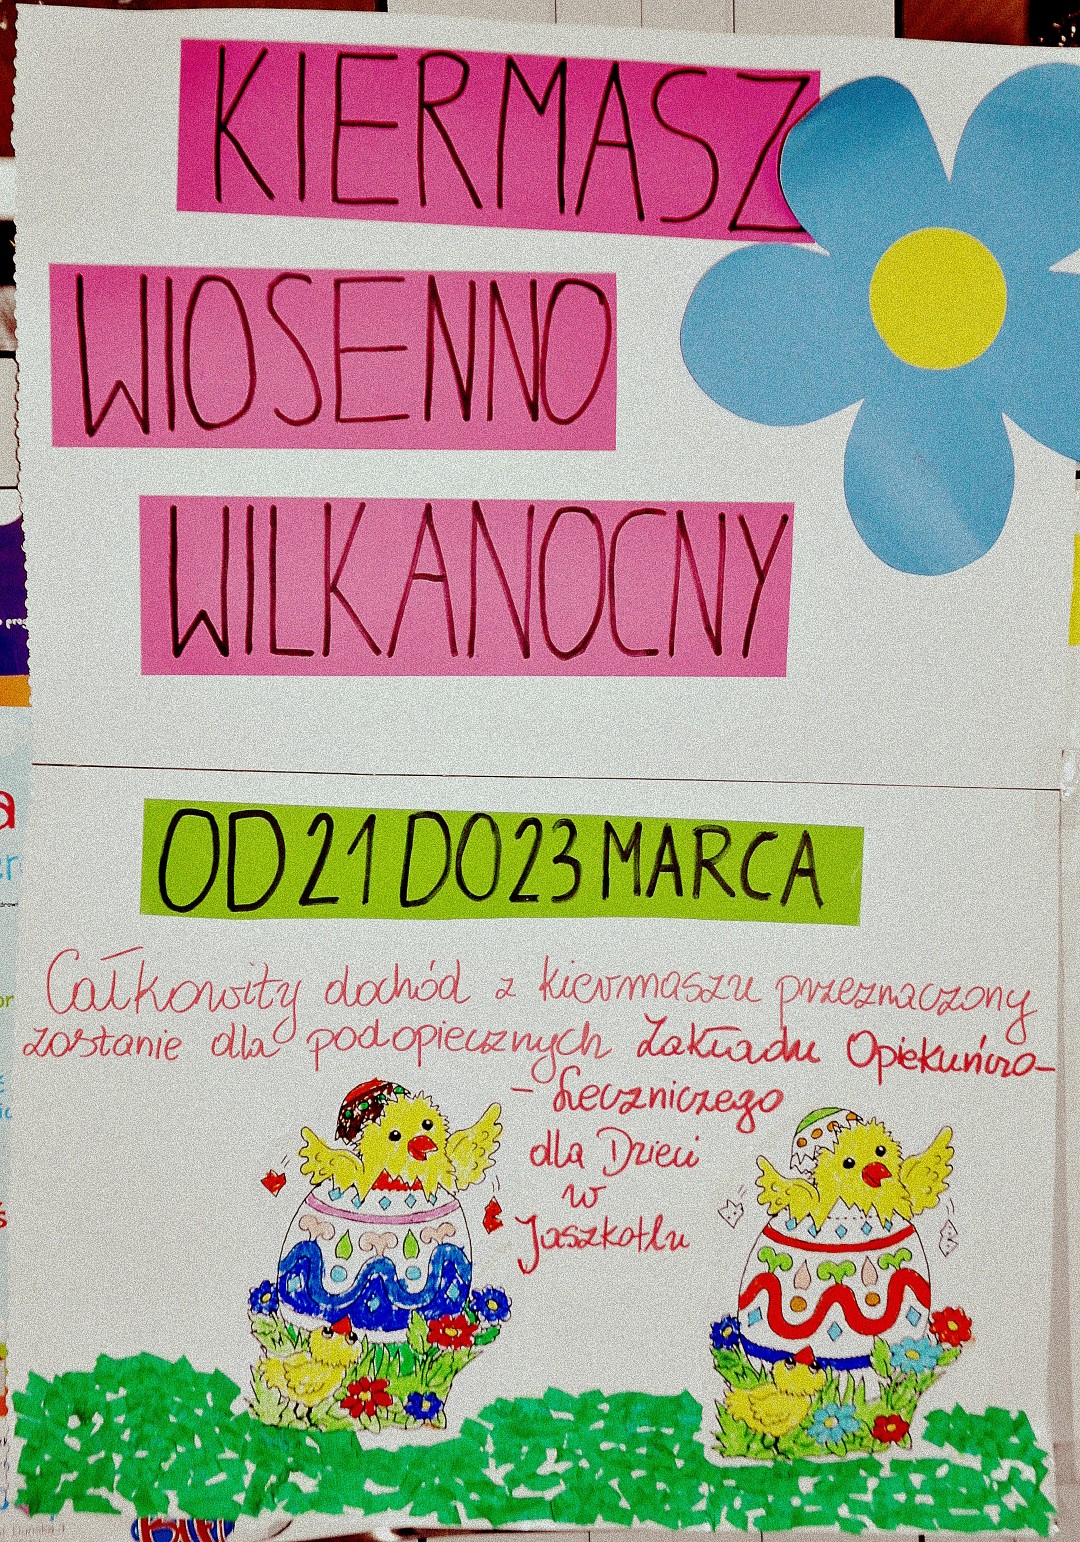 KIERMASZ
WIOSENNO
WILKANOCNY
OD 21 DO 23 MARCA
Całkowity dochód z kiermaszu przeznaczony
zostanie dla podopiecznych Zakładu Opiekuńczo-
- Leczniczego
dla Dzieci
w
Jaszkotlu